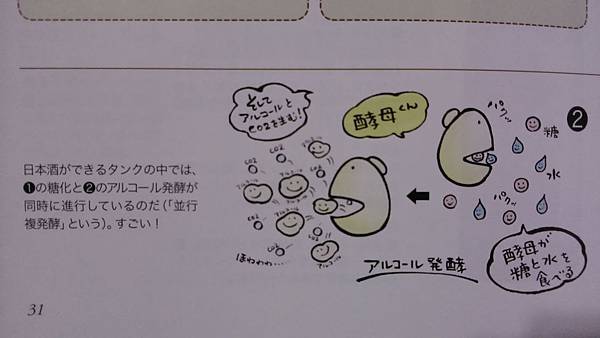 日本酒ができるタンクの中では、
❶の糖化と❷のアルコール発酵が
同時に進行しているのだ(「並行
複発酵」という)。すごい！
そして
アルコールと
CO2を生む！
酵母くん
パクッ
❷
糖
パクッ
水
酵母が
糖と水を
食べる
CO2
CO2
アルコール
アルコール
アルコール
CO2
CO2
アルコール
ほわわわ…
アルコール発酵
31